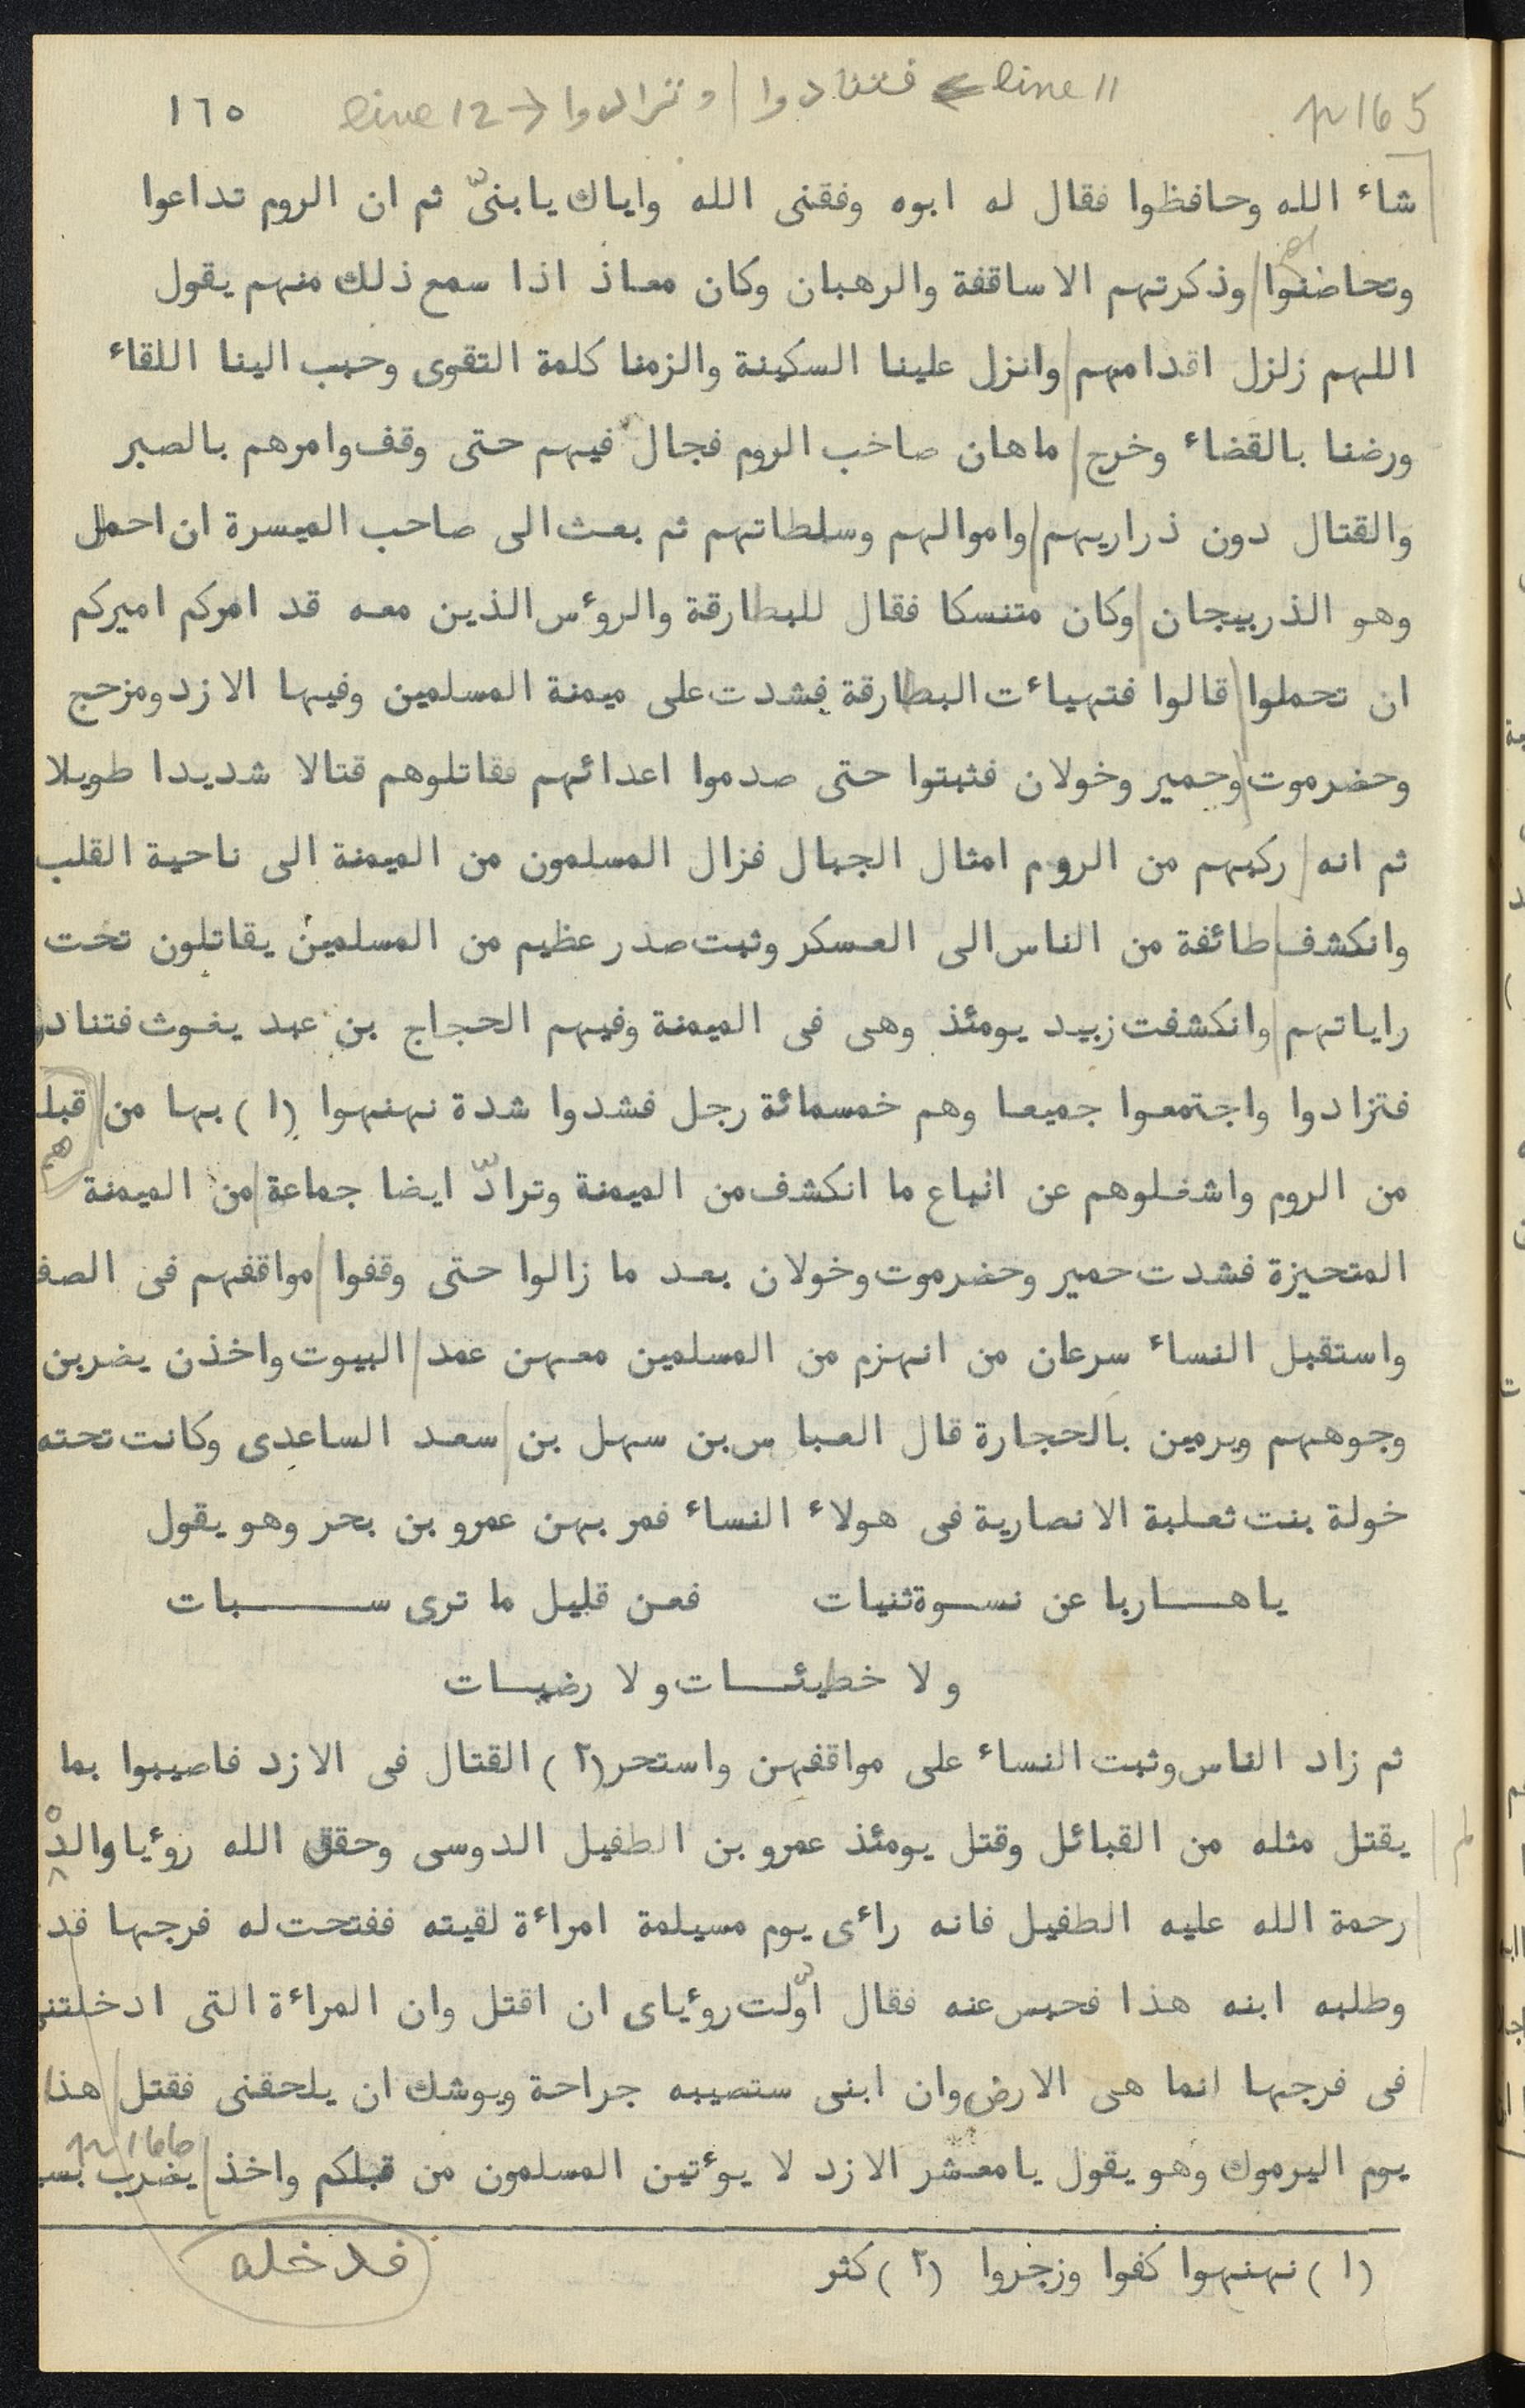 p 165
line 11 → فتنادوا / وترادوا ← line 12
١٦٥
شاء الله وحافظوا فقال له ابوه وفقنى الله واياك يابنىّ ثم ان الروم تداعوا
وتحاضوا وذكرتهم الاساقفة والرهبان وكان معاذ اذا سمع ذلك منهم يقول
اللهم زلزل اقدامهم وانزل علينا السكينة والزمنا كلمة التقوى وحبب الينا اللقاء
ورضنا بالقضاء وخرج ماهان صاحب الروم فجال فيهم حتى وقف وامرهم بالصبر
والقتال دون ذراريهم واموالهم وسلطاتهم ثم بعث الى صاحب الميسرة ان احمل
وهو الذربيجان وكان متنسكا فقال للبطارقة والروؤس الذين معه قد امركم اميركم
ان تحملوا قالوا فتهيائت البطارقة فشدت على ميمنة المسلمين وفيها الازد ومزحج
وحضرموت وحمير وخولان فثبتوا حتى صدموا اعدائهم فقاتلوهم قتالا شديدا طويلا
ثم انه ركبهم من الروم امثال الجبال فزال المسلمون من الميمنة الى ناحية القلب
وانكشف طائفة من الناس الى العسكر وثبت صدر عظيم من المسلمين يقاتلون تحت
راياتهم وانكشفت زبيد يومئذ وهى فى الميمنة وفيهم الحجاج بن عبد يغوث فتنادو
فتزادوا واجتمعوا جميعا وهم خمسمائة رجل فشدوا شدة نهنهوا (١) بها من قبلـ
هم
من الروم واشغلوهم عن اتباع ما انكشف من الميمنة وترادّ ايضا جماعة من الميمنة
المتحيزة فشدت حمير وحضرموت وخولان بعد ما زالوا حتى وقفوا مواقفهم فى الصف
واستقبل النساء سرعان من انهزم من المسلمين معهن عمد البيوت واخذن يضربن
وجوههم ويرمين بالحجارة قال العباس بن سهل بن سعد الساعدى وكانت تحته
خولة بنت ثعلبة الانصارية فى هولاء النساء فمر بهن عمرو بن بحر وهو يقول
ياهاربا عن نسوة ثنيات فعن قليل ما ترى سبات
ولا خطيئات ولا رضيات
ثم زاد الناس وثبت النساء على مواقفهن واستحر (٢) القتال فى الازد فاصيبوا بما
لم يقتل مثله من القبائل وقتل يومئذ عمرو بن الطفيل الدوسى وحقق الله روؤيا والده
رحمة الله عليه الطفيل فانه راءى يوم مسيلمة امراءة لقيته ففتحت له فرجها فد
وطلبه ابنه هذا فحبس عنه فقال اوّلت روؤياى ان اقتل وان المراءة التى ادخلتنى
فى فرجها انما هى الارض وان ابنى ستصيبه جراحة ويوشك ان يلحقنى فقتل هذا
p 166
يوم اليرموك وهو يقول يامعشر الازد لا يوؤتين المسلمون من قبلكم واخذ يضرب بسـ
(١) نهنهوا كفوا وزجروا (٢) كثر
فدخله